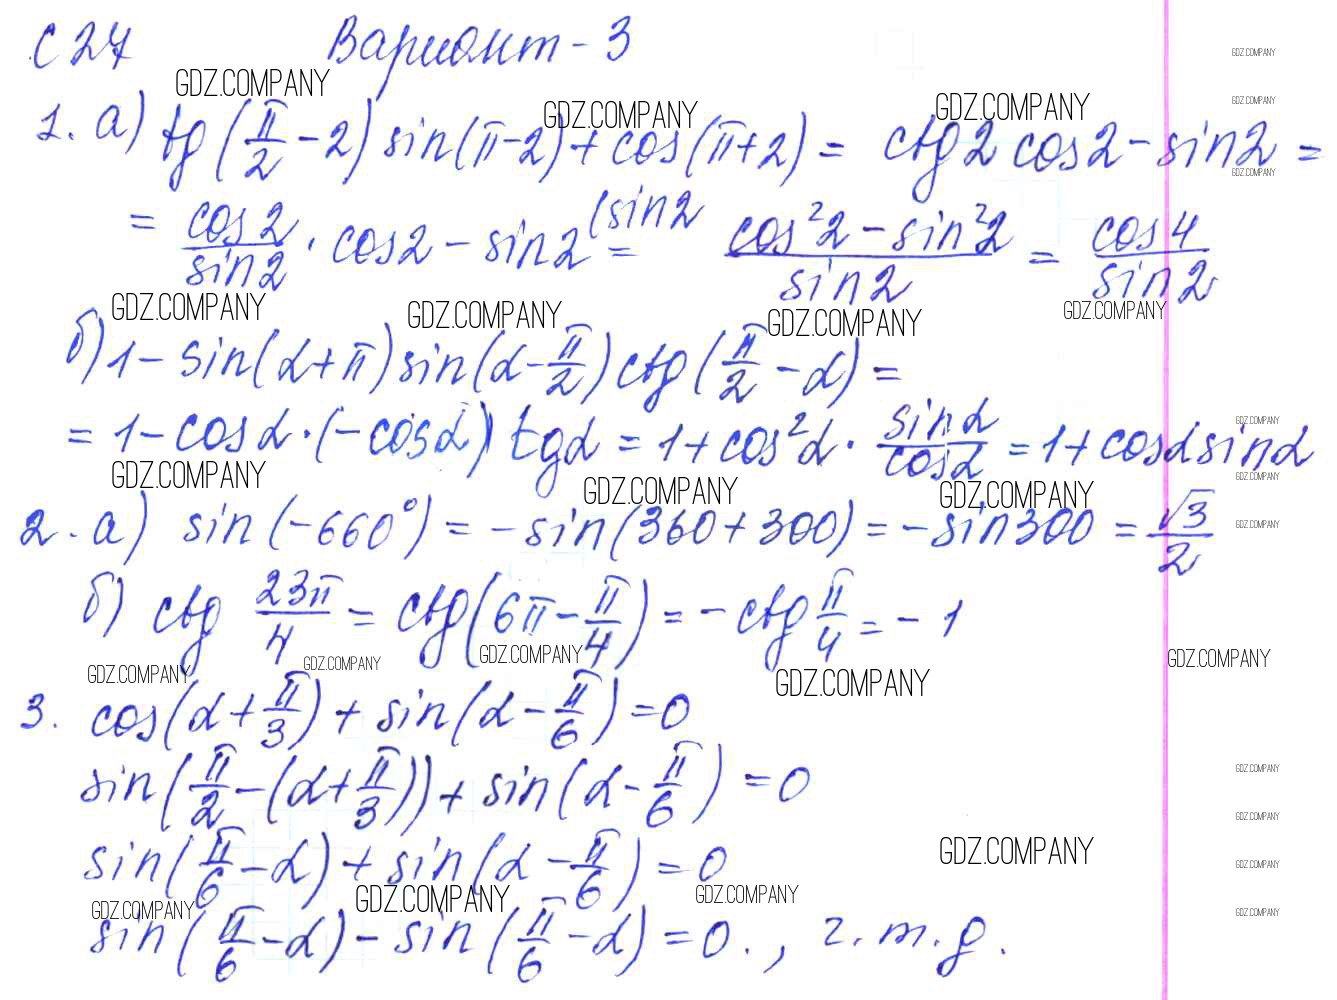 С 27 Вариант - 3
GDZ.COMPANY GDZ.COMPANY GDZ.COMPANY GDZ.COMPANY GDZ.COMPANY
1. а) tg(π/2 - 2) sin(π-2) + cos(π+2) = ctg2 cos2 - sin2 =
GDZ.COMPANY
= cos2/sin2 · cos2 - sin2 (sin2 = (cos²2 - sin²2)/sin2 = cos4/sin2
GDZ.COMPANY GDZ.COMPANY GDZ.COMPANY GDZ.COMPANY
б) 1 - sin(α+π) sin(α-π/2) ctg(π/2 - α) =
GDZ.COMPANY
= 1 - cosα · (-cosα) tgα = 1 + cos²α · sinα/cosα = 1 + cosα sinα
GDZ.COMPANY GDZ.COMPANY GDZ.COMPANY GDZ.COMPANY
2. а) sin(-660°) = -sin(360+300) = -sin300 = √3/2
GDZ.COMPANY
б) ctg 23π/4 = ctg(6π - π/4) = -ctg π/4 = -1
GDZ.COMPANY GDZ.COMPANY GDZ.COMPANY GDZ.COMPANY GDZ.COMPANY
3. cos(α+π/3) + sin(α - π/6) = 0
sin(π/2 - (α+π/3)) + sin(α - π/6) = 0
GDZ.COMPANY
GDZ.COMPANY
sin(π/6 - α) + sin(α - π/6) = 0
GDZ.COMPANY GDZ.COMPANY
GDZ.COMPANY GDZ.COMPANY GDZ.COMPANY GDZ.COMPANY
sin(π/6 - α) - sin(π/6 - α) = 0. , г. т. д.